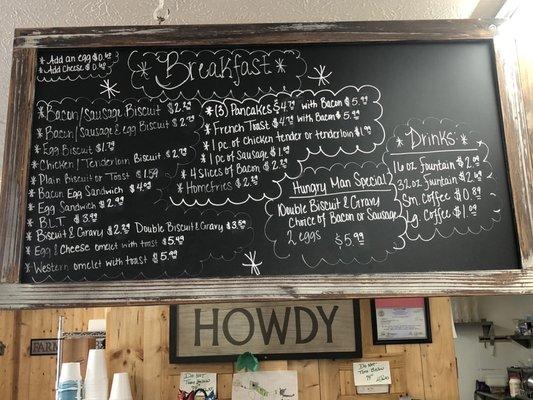 * Add an egg $0.
* Add Cheese $0.
Breakfast
* Bacon/sausage Biscuit $2.
* Bacon/Sausage & egg Biscuit $2.
* Egg Biscuit $1.
* Chicken/Tenderloin Biscuit $2.
* Plain Biscuit or Toast $1.59
* Bacon Egg Sandwich $4.
* Egg Sandwich $2.
* BLT $3.
* Biscuit & Gravy $2. Double Biscuit & Gravy $3.
* Egg & Cheese omelet with toast $5.
* Western omelet with toast $5.
* (3) Pancakes $4. with Bacon $5.
* French Toast $4. with Bacon $5.
* 1 pc of Chicken tender or tenderloin $1.
* 1 pc of Sausage $1.
* 4 slices of Bacon $2.
* Homefries $2.
Hungry Man Special
Double Biscuit & Gravy
Choice of Bacon or Sausage
2 eggs $5.
* Drinks *
16 oz fountain $2.
32 oz fountain $2.
Sm. coffee $0.
Lg. Coffee $1.
HOWDY
FARM
DO NOT
DO NOT